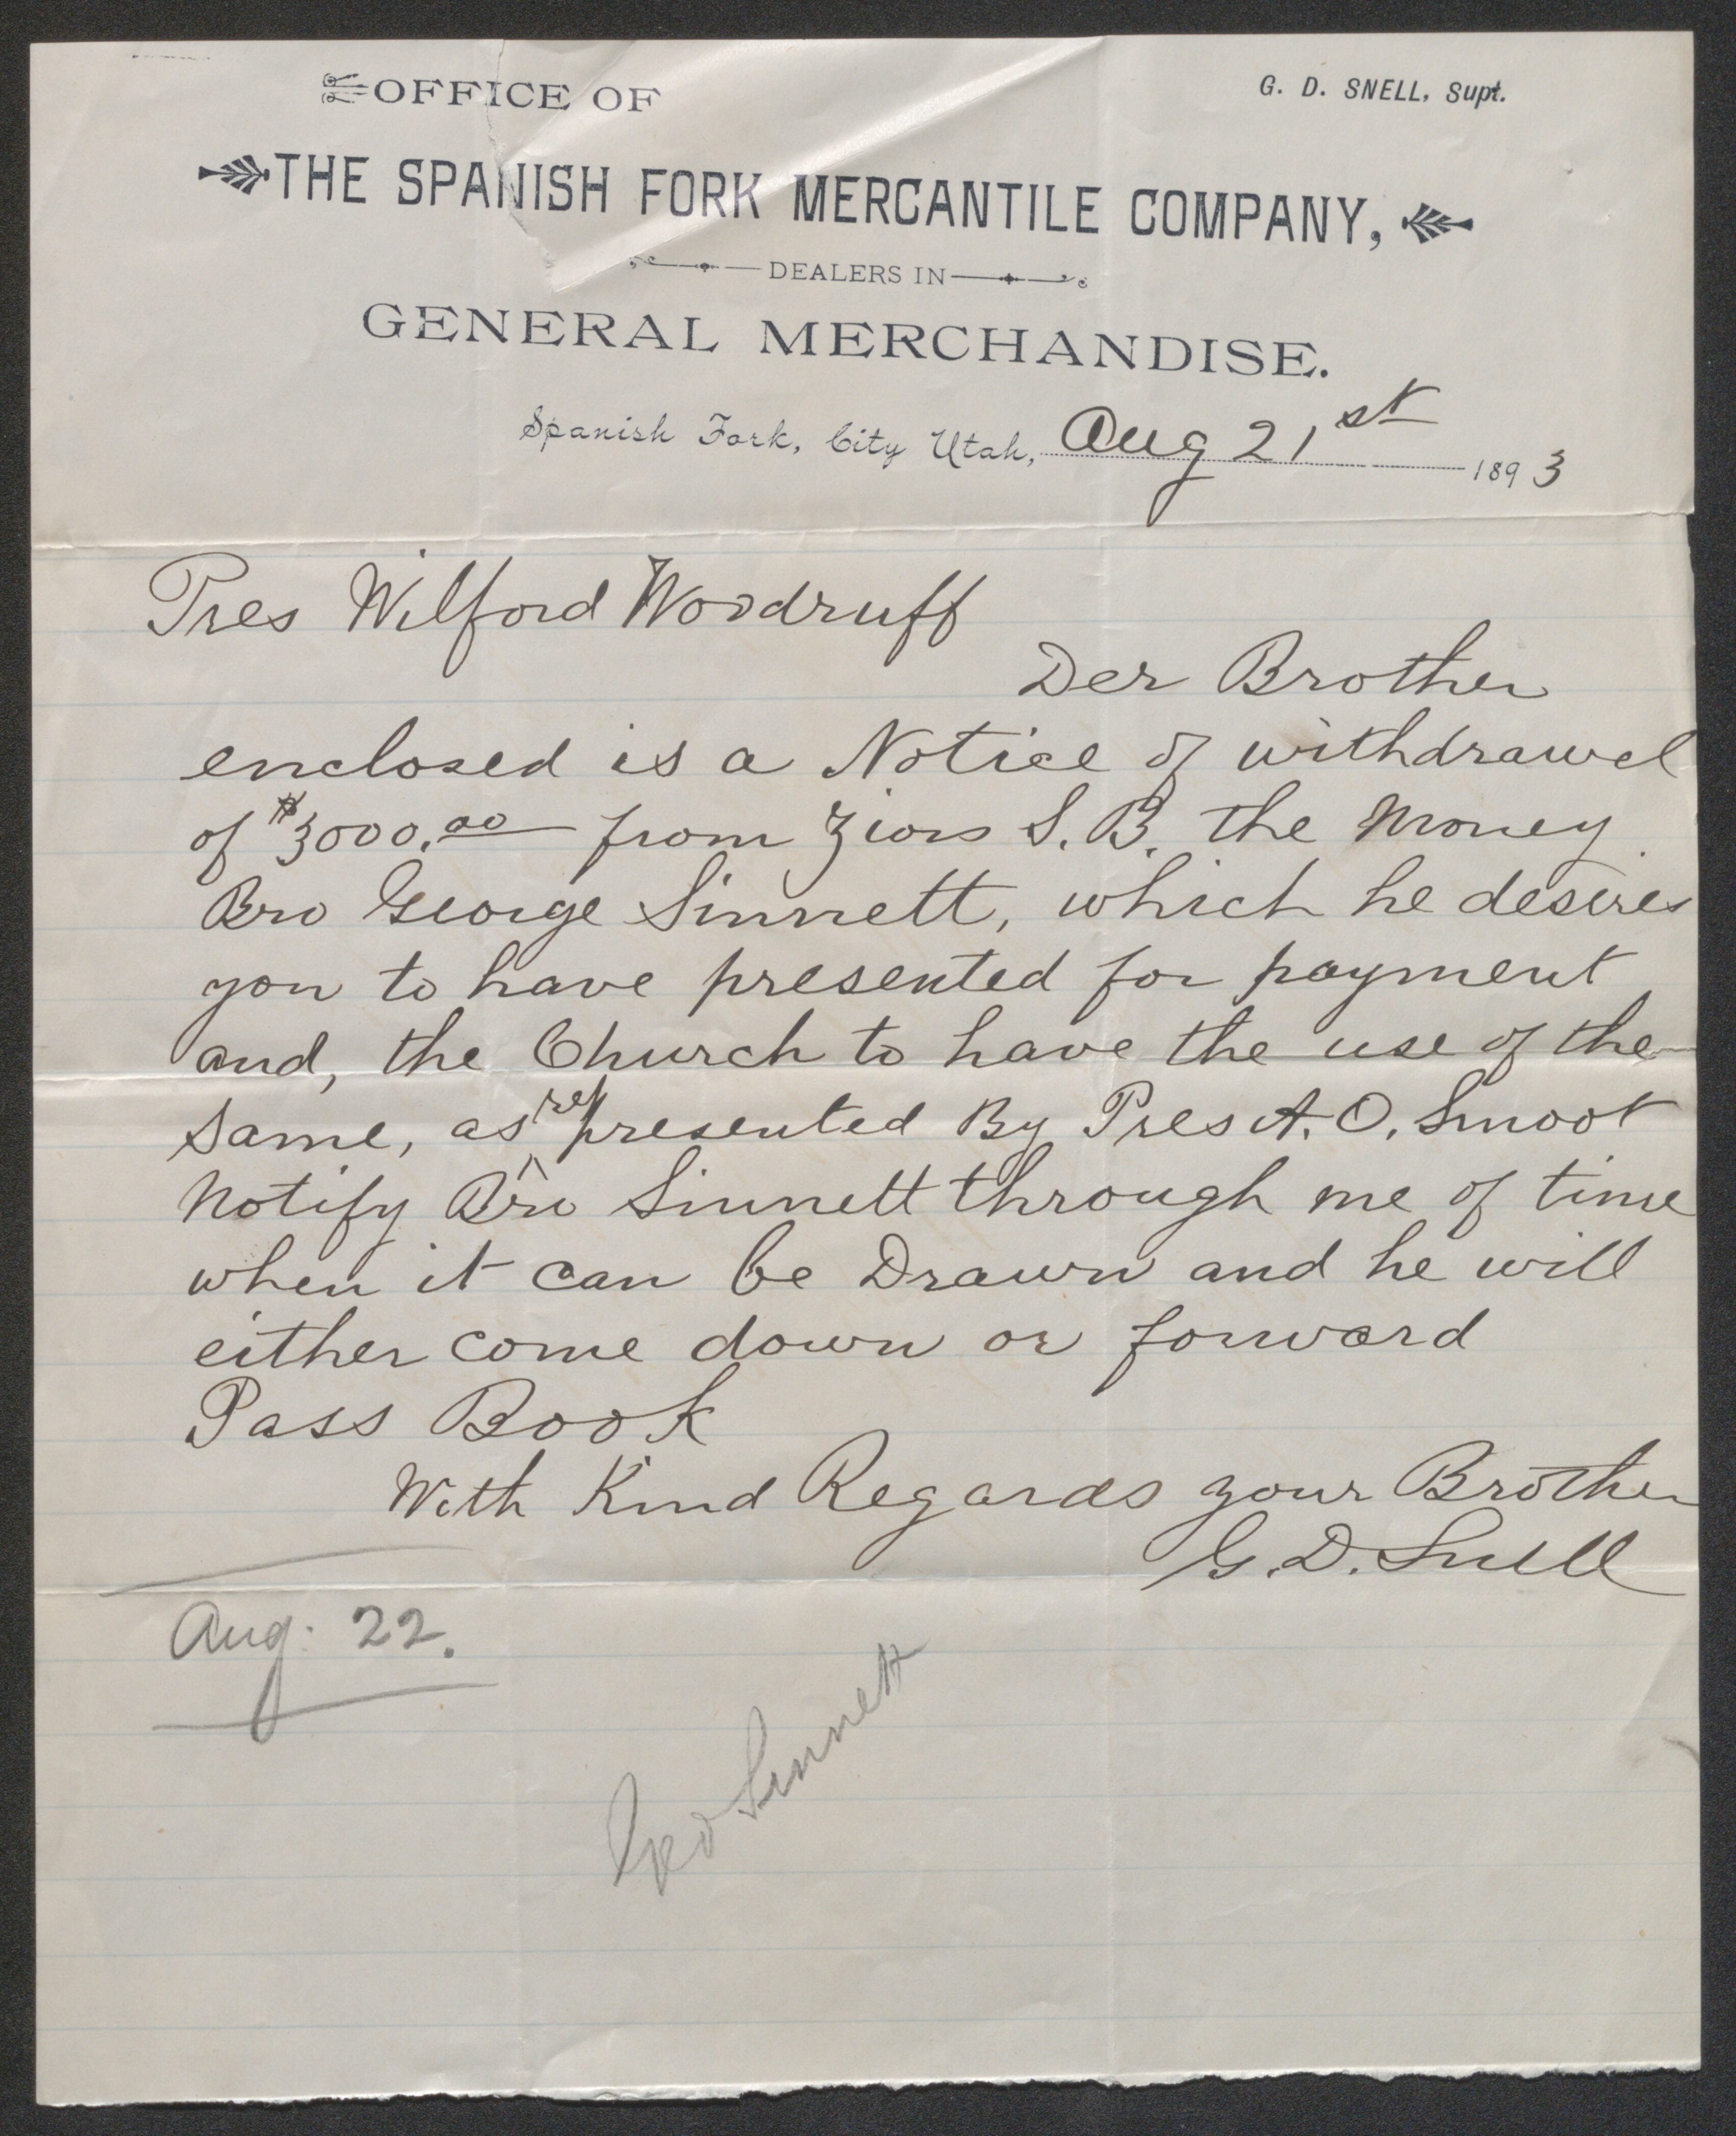 OFFICE OF
G. D. SNELL, Supt.
THE SPANISH FORK MERCANTILE COMPANY,
DEALERS IN
GENERAL MERCHANDISE.
Spanish Fork, City Utah, Aug 21st 1893
Pres Wilford Woodruff
Der Brother
enclosed is a Notice of withdrawel
of $3000.00 from Zions S. B. the Money
Bro George Sinnett, which he desires
you to have presented for payment
and, the Church to have the use of the
same, as represented By Pres A. O. Smoot
Notify Bro Sinnett through me of time
when it can be Drawn and he will
either come down or forward
Pass Book
With Kind Regards your Brother
G. D. Snell
Aug. 22.
Geo Sinnett